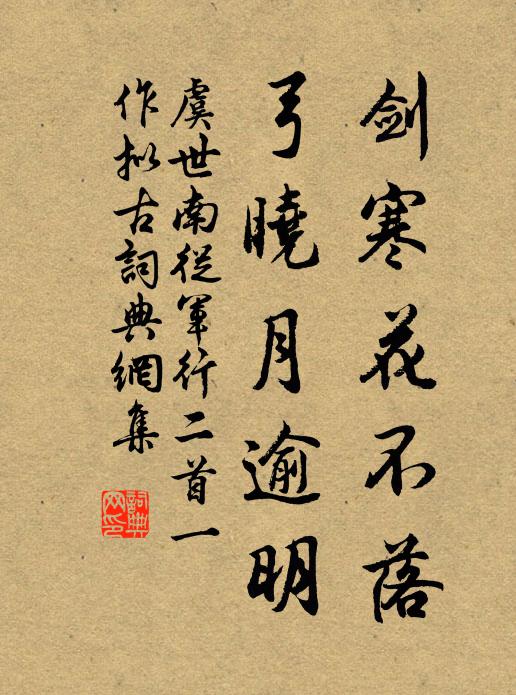 剑寒花不落
弓曉月逾明
虞世南從军行二首一
作拟古詞典網集
詞典网印